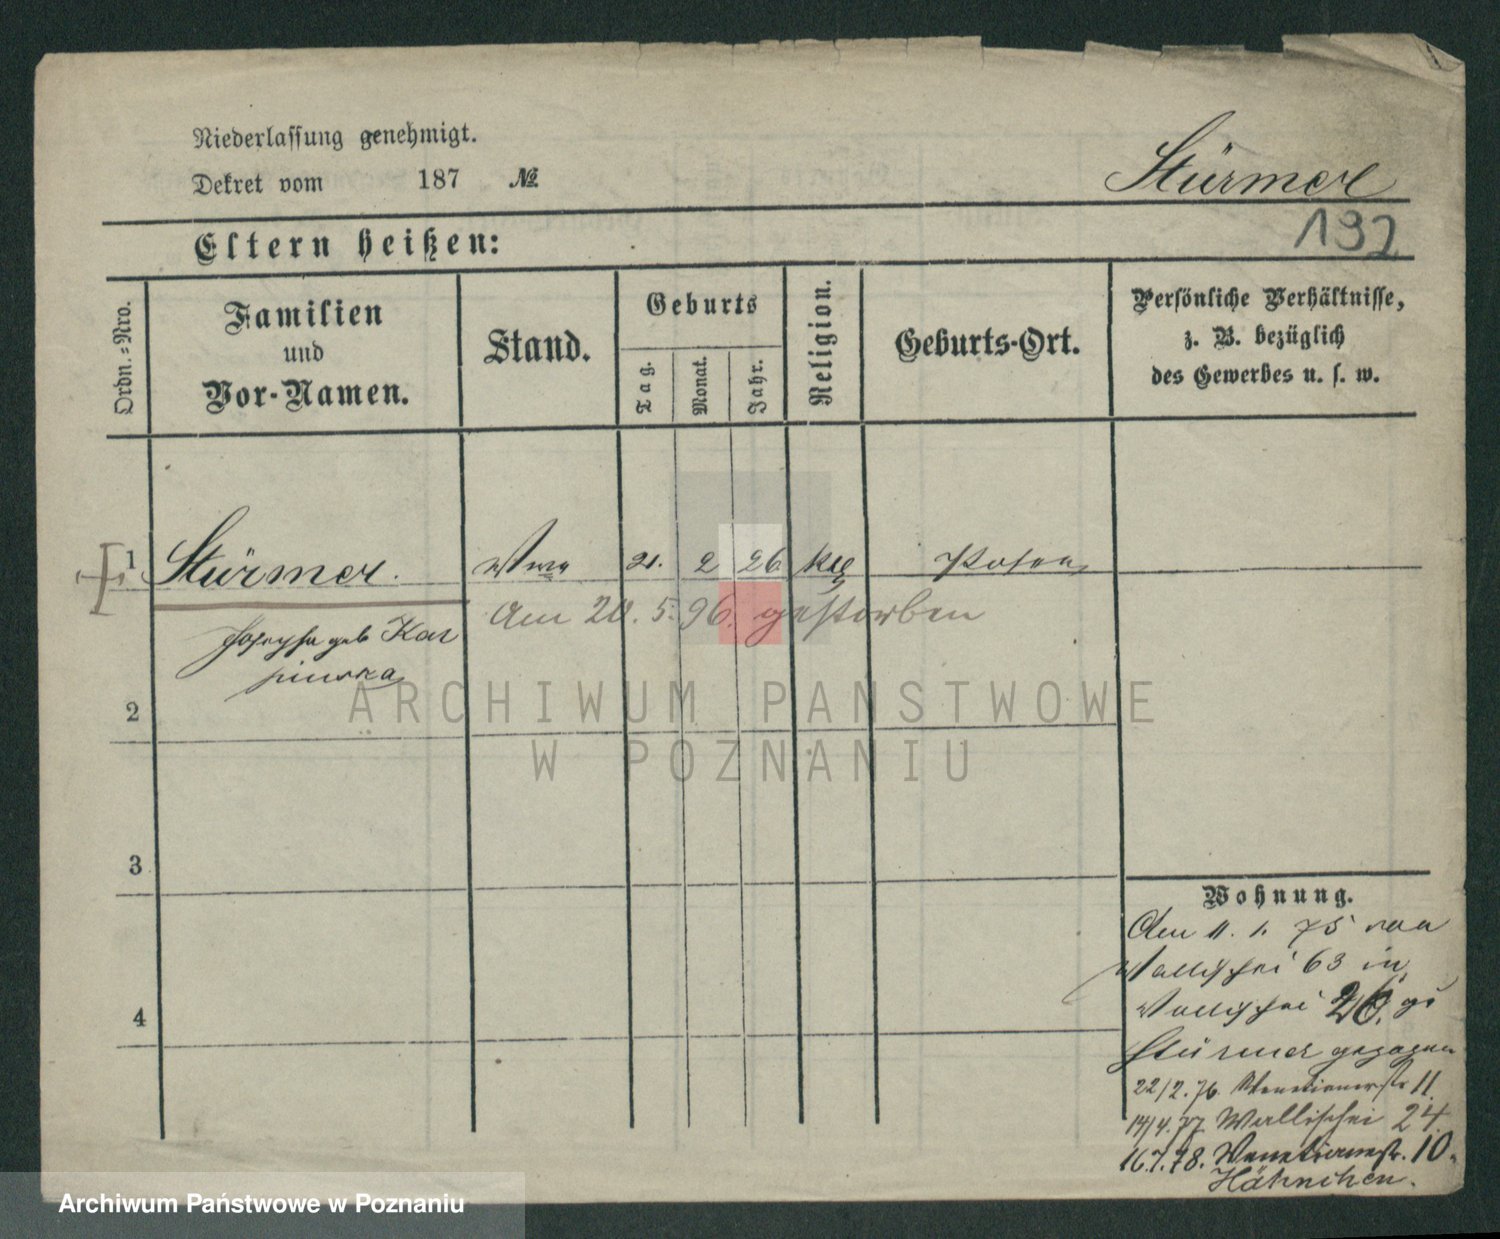 Niederlassung genehmigt.
Dekret vom 187 №
Stürmer
192
Eltern heißen:
Ordn.=Nro.
Familien
und
Vor-Namen.
Stand.
Geburts
Tag.
Monat.
Jahr.
Religion.
Geburts-Ort.
Persönliche Verhältnisse,
z. B. bezüglich
des Gewerbes u. s. w.
1 Stürmer. Wwe 21. 2 26 kth Posen
Am 20. 5. 96. gestorben
Josepha geb Kar
pinska
2
3
4
ARCHIWUM PAŃSTWOWE
W POZNANIU
Wohnung.
Am 11. 1. 75 von
Wallischei 63 in
Wallischei 26. zu
Stürmer gezogen
22/2. 76. Venetianerstr 11.
14/4. 77. Wallischei 24.
16.7.78. Venetianerstr. 10.
Hähnchen.
Archiwum Państwowe w Poznaniu